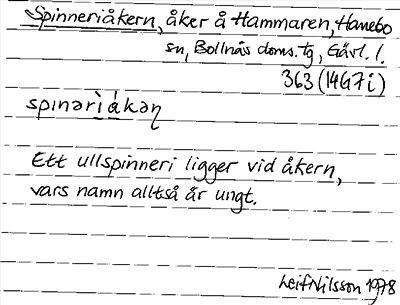 Spinneriåkern, åker å Hammaren, Hanebo
sn, Bollnäs doms. tg, Gävl. l.
363 (14G7i)
spinəriåkəɳ
Ett ullspinneri ligger vid åkern,
vars namn alltså är ungt.
Leif Nilsson 1978